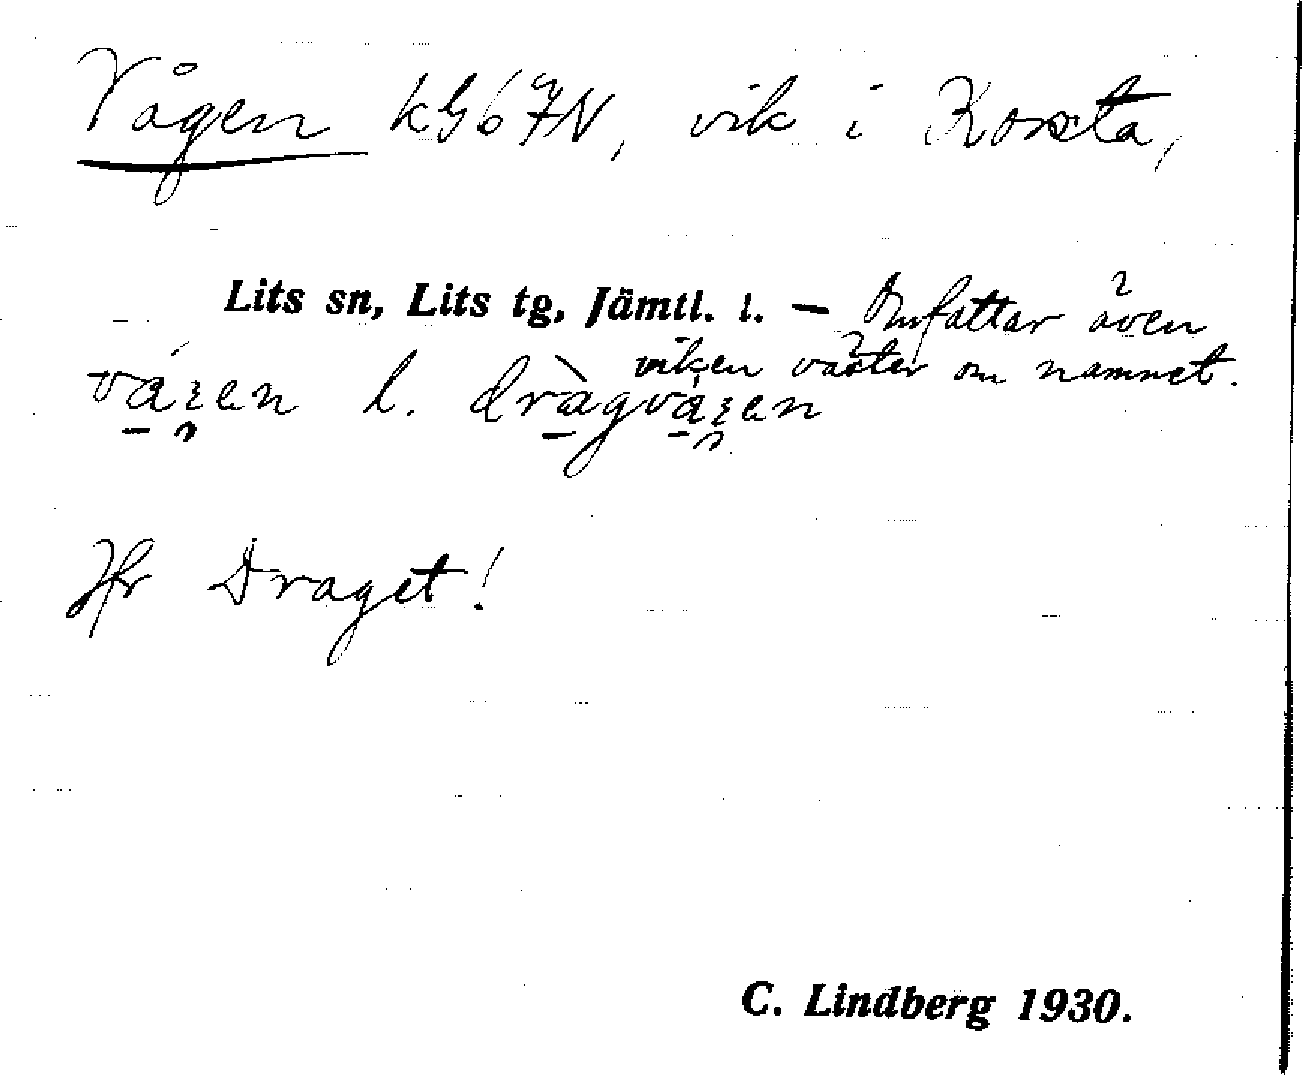 Vågen kG67N, vik i Korsta,
Lits sn, Lits tg, Jämtl. l. — Omfattar även
viken väster om namnet.
l.
Jfr Draget!
C. Lindberg 1930.